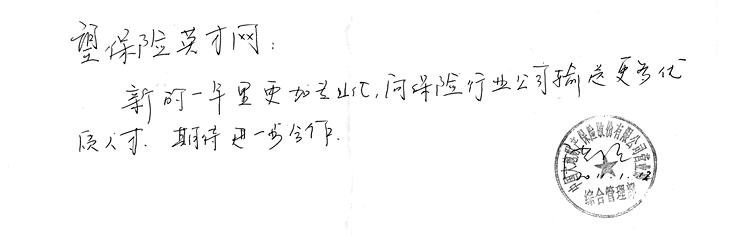 望保险英才网：
新的一年里更加专业化，向保险行业公司输送更多优
质人才．期待进一步合作．
中国人民财产保险股份有限公司营业部
综合管理部